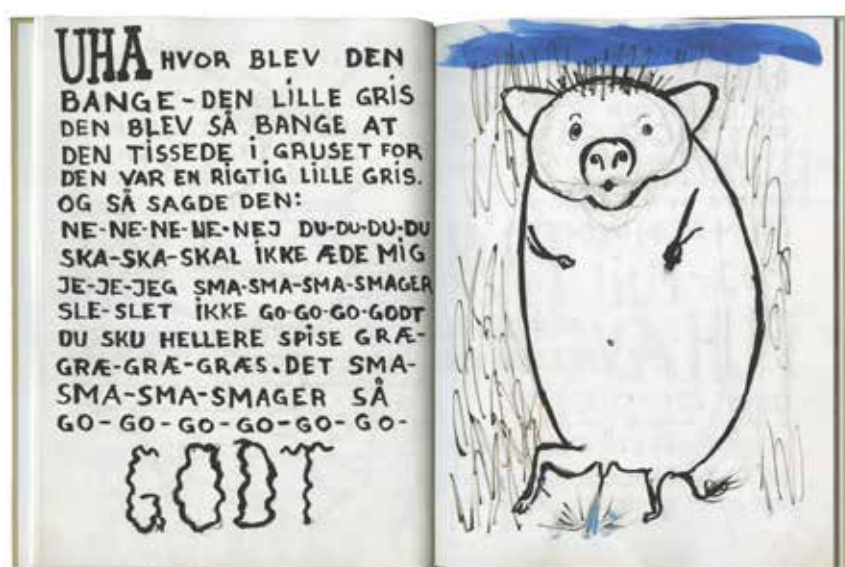 UHA HVOR BLEV DEN
BANGE-DEN LILLE GRIS
DEN BLEV SÅ BANGE AT
DEN TISSEDE I GRUSET FOR
DEN VAR EN RIGTIG LILLE GRIS.
OG SÅ SAGDE DEN:
NE-NE-NE-NE-NEJ DU-DU-DU-DU
SKA-SKA-SKAL IKKE ÆDE MIG
JE-JE-JEG SMA-SMA-SMA-SMAGER
SLE-SLET IKKE GO-GO-GO-GODT
DU SKU HELLERE SPISE GRÆ-
GRÆ-GRÆ-GRÆS. DET SMA-
SMA-SMA-SMAGER SÅ
GO-GO-GO-GO-GO-GO-
GODT